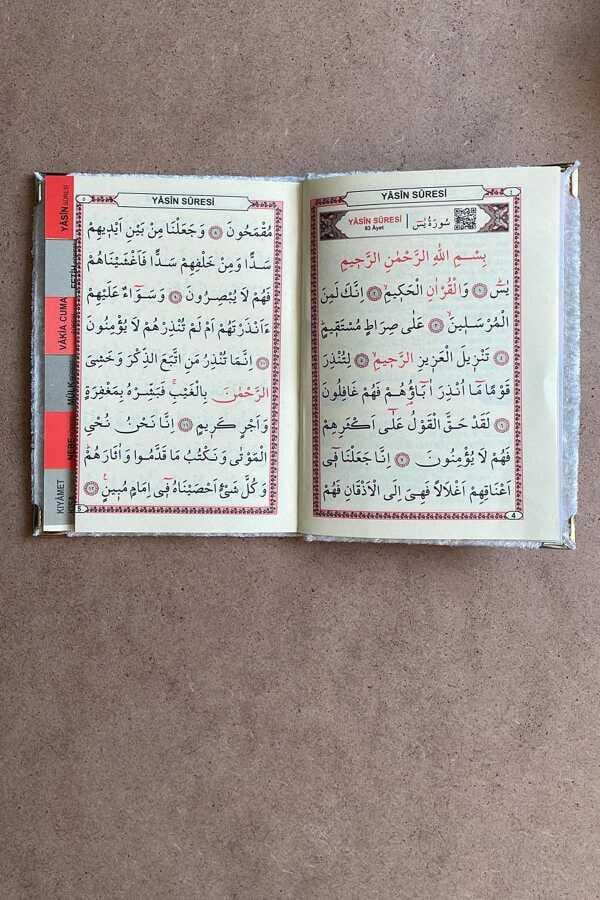 YÂSÎN SÛRESİ
YÂSİN SÛRESİ
83 Âyet
سُورَةُ يٰسٓ
بِسْمِ اللّٰهِ الرَّحْمٰنِ الرَّحٖيمِ
يٰسٓ ﴿١﴾ وَالْقُرْاٰنِ الْحَكٖيمِ ﴿٢﴾ اِنَّكَ لَمِنَ
الْمُرْسَلٖينَ ﴿٣﴾ عَلٰى صِرَاطٍ مُسْتَقٖيمٍ
﴿٤﴾ تَنْزٖيلَ الْعَزٖيزِ الرَّحٖيمِ ﴿٥﴾ لِتُنْذِرَ
قَوْمًا مَٓا اُنْذِرَ اٰبَٓاؤُ۬هُمْ فَهُمْ غَافِلُونَ
﴿٦﴾ لَقَدْ حَقَّ الْقَوْلُ عَلٰٓى اَكْثَرِهِمْ
فَهُمْ لَا يُؤْمِنُونَ ﴿٧﴾ اِنَّا جَعَلْنَا فٖٓى
اَعْنَاقِهِمْ اَغْلَالًا فَهِىَ اِلَى الْاَذْقَانِ فَهُمْ
4
YÂSÎN SÛRESİ
مُقْمَحُونَ ﴿٨﴾ وَجَعَلْنَا مِنْ بَيْنِ اَيْدٖيهِمْ
سَدًّا وَمِنْ خَلْفِهِمْ سَدًّا فَاَغْشَيْنَاهُمْ
فَهُمْ لَا يُبْصِرُونَ ﴿٩﴾ وَسَوَٓاءٌ عَلَيْهِمْ
ءَاَنْذَرْتَهُمْ اَمْ لَمْ تُنْذِرْهُمْ لَا يُؤْمِنُونَ
﴿١٠﴾ اِنَّمَا تُنْذِرُ مَنِ اتَّبَعَ الذِّكْرَ وَخَشِىَ
الرَّحْمٰنَ بِالْغَيْبِۚ فَبَشِّرْهُ بِمَغْفِرَةٍ
وَاَجْرٍ كَرٖيمٍ ﴿١١﴾ اِنَّا نَحْنُ نُحْىِ
الْمَوْتٰى وَنَكْتُبُ مَا قَدَّمُوا وَاٰثَارَهُمْ
وَكُلَّ شَیْءٍ اَحْصَيْنَاهُ فٖٓى اِمَامٍ مُبٖينٍ ﴿١٢﴾
5
YÂSÎN SÛRESİ
VÂKİA CUMA
KIYÂMET